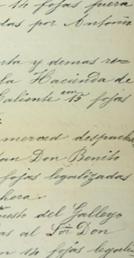 14 fojas fuera
das por Antonio
rta y demas re
la Hacienda de
Caliente en 15 fojas
merced despacha
an Don Benito
fojas legalizadas
uste del Gallego
as al Sor Don
n 14 fojas legali